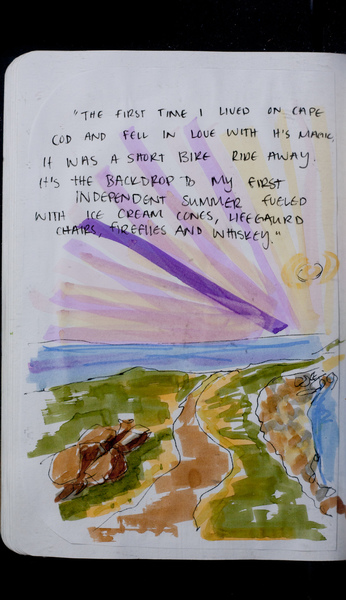 "THE FIRST TIME I LIVED ON CAPE
COD AND FELL IN LOVE WITH IT'S MAGIC,
IT WAS A SHORT BIKE RIDE AWAY.
IT'S THE BACKDROP TO MY FIRST
INDEPENDENT SUMMER FUELED
WITH ICE CREAM CONES, LIFEGAURD
CHAIRS, FIREFLIES AND WHISKEY."